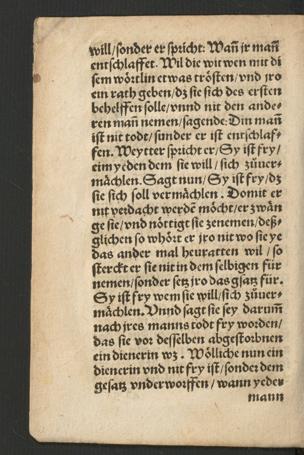 will/sonder er spricht: Wañ jr mañ
entschlaffet. Wil die witwen mit di
sem wörtlin etwas trösten/vnd jro
ein rath geben/dz sie sich des ersten
behelffen solle/vnnd nit den ande-
ren mañ nemen/sagende: Din mañ
ist nit todt/sunder er ist entschlaf-
fen. Weytter spricht er/Sy ist fry/
eim yeden dem sie will/sich züuer-
mächlen. Sagt nun/Sy ist fry/dz
sie sich soll vermächlen. Domit er
nit verdacht werdē möcht/er zwän
ge sie/vnd nöttigt sie zenemen/deß-
glichen so whört er jro nit wo sie ye
das ander mal heuratten wil/so
sterckt er sie nit in dem selbigen für
nemen/sonder setz jro das gsatz für.
Sy ist fry wem sie will/sich züuer-
mächlen. Vnnd sagt sie sey darum̃
nach jres manns todt fry worden/
das sie vor desselben abgestorbnen
ein dienerin wz. Wölliche nun ein
dienerin vnd nit fry ist/sonder dem
gesatz vnderworffen/wann yeder
mann